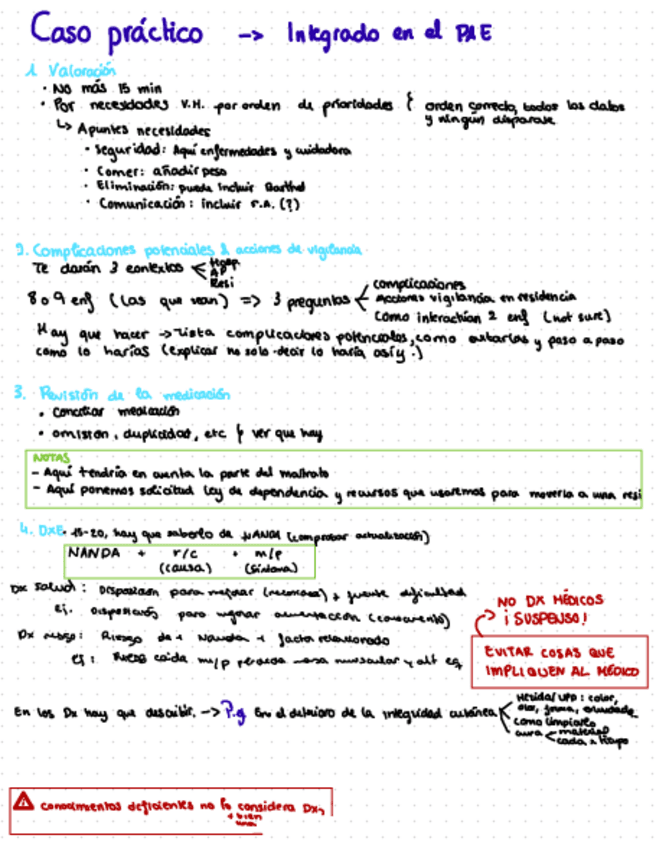 Caso práctico -> Integrado en el PAE
1. Valoración
· NO más 15 min
· Por necesidades V.H. por orden de prioridades { orden correcto, todos los datos
y ningún disparate
↳ Apuntes necesidades
· Seguridad: Aquí enfermedades y cuidadora
· Comer: añadir peso
· Eliminación: puede incluir Barthel
· Comunicación: incluir (?)
2. Complicaciones potenciales & acciones de vigilancia
Te darán 3 contextos < Hosp
AP
Resi
8 o 9 enf (Las que sean) => 3 preguntas < complicaciones
Acciones vigilancia en residencia
Como interactúan 2 enf (not sure)
Hay que hacer -> Lista complicaciones potenciales, como evitarlas y paso a paso
como lo harías (explicar no solo decir lo haría así y :)
3. Revisión de la medicación
· Conciliar medicación
· omisión, duplicidad, etc } ver que hay
NOTAS
- Aquí tendría en cuenta la parte del maltrato
- Aquí ponemos solicitud ley de dependencia y recursos que usaremos para moverla a una resi
4. DxE · 15-20, hay que saberlo de NANDA (comprobar actualización)
NANDA + r/c + m/p
(causa) (síntoma)
Dx Salud: Disposición para mejorar + fuente dificultad
ej. Disposición para mejorar
Dx riesgo: Riesgo de + Nanda + factor relacionado
ej: Riesgo caída m/p perdida masa muscular y alt eq
NO DX MÉDICOS
¡SUSPENSO!
EVITAR COSAS QUE
IMPLIQUEN AL MÉDICO
En los Dx hay que describir. -> P.ej En el deterioro de la integridad cutánea < Herida/UPP: color,
olor, forma, exudado
como limpiarlo
cura < material
cada x tiempo
⚠ conocimientos deficientes no lo considera Dx,
+ bien